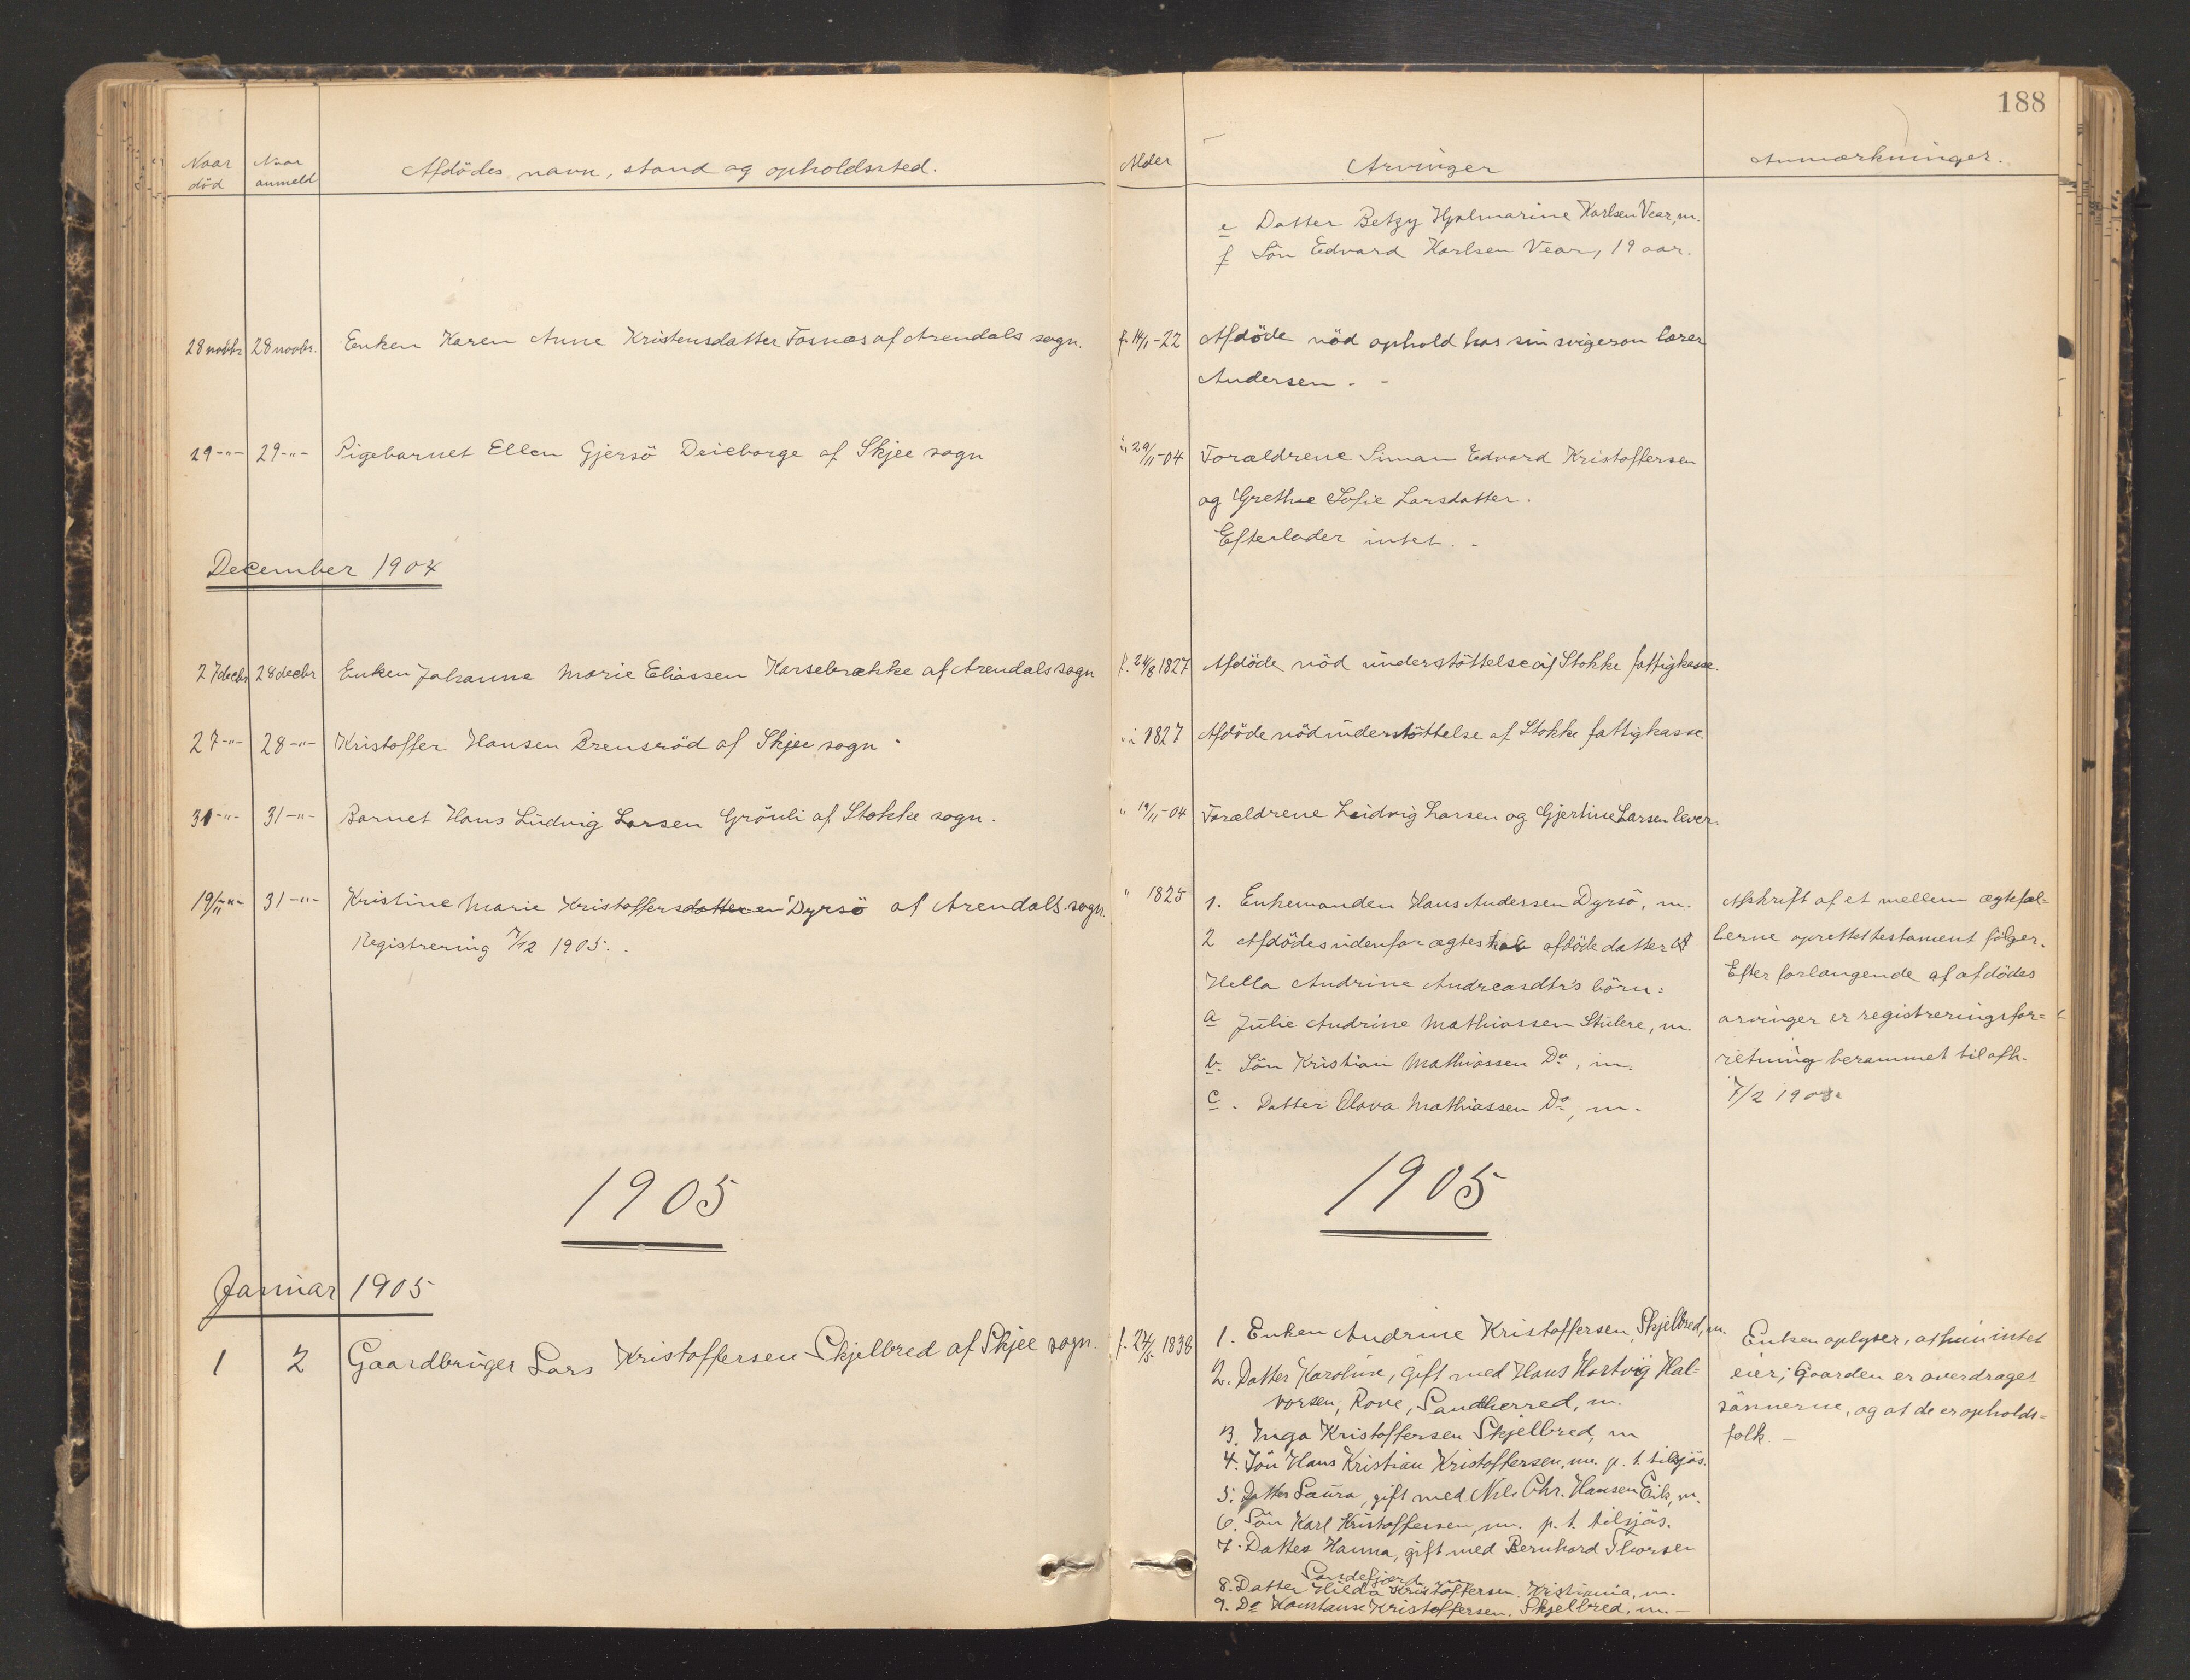 188
Naar død
Naar anmeld
Afdødes navn, stand og opholdssted.
Alder
Arvinger
Anmærkninger.
e Datter Betzy Hjalmarine Karlsen Vear, m.
f Sön Edvard Karlsen Vear, 19 aar.
28 novbr 28 novbr. Enken Karen Anne Kristensdatter Fosnæs af Arendals sogn. f. 14/1-22 Afdöde nöd ophold hos sin svigersøn lærer
Andersen. -
29-"- 29-"- Pigebarnet Ellen Gjersö Deieborge af Skjee sogn " 29/11-04 Forældrene Siman Edvard Kristoffersen
og Grethe Sofie Larsdatter.
Efterlader intet. -
December 1904
27 decbr 28 decbr Enken Johanne Marie Eliassen Korsebrække af Arendals sogn f. 24/8 1827 Afdöde nöd understöttelse af Stokke fattigkasse.
27-"- 28-"- Kristoffer Hansen Brensröd af Skjee sogn " 1827 Afdöde nöd understöttelse af Stokke fattigkasse.
31-"- 31-"- Barnet Hans Ludvig Larsen Grönli af Stokke sogn. " 19/11-04 Forældrene Ludvig Larsen og Gjertine Larsen lever.
19/11-"- 31-"- Kristine Marie Kristoffersdatter Dyrsö af Arendals sogn. " 1825 1. Enkemanden Hans Andersen Dyrsö, m.
Registrering 7/12 1905.
2 Afdödes udenfor ægteskab afdöde datter
Hella Andrine Andreasdtr's börn:
a Julie Andrine Mathiassen Stulere, m.
b. Sön Kristian Mathiassen Do, m.
c. Datter Olava Mathiassen Do, m.
Afskrift af et mellem ægtefæl-
lerne oprettet testament fölger.
Efter forlangende af afdödes
arvinger er registreringsfor-
retning berammet til afh.
7/2 1905.
1905
1905
Januar 1905
1 2 Gaardbruger Lars Kristoffersen Skjelbred af Skjee sogn. f. 24/5 1838 1. Enken Andrine Kristoffersen, Skjelbred, m.
2. Datter Karoline, gift med Hans Hartvig Hal-
vorsen, Rove, Sandherred, m.
3. Inga Kristoffersen Skjelbred, m
4. Sön Hans Kristian Kristoffersen, m. p. t. tilsjös.
5. Datter Laura, gift med Nils Chr. Hansen Eik, m.
6. Sön Karl Kristoffersen, m. p. t. tilsjös.
7. Datter Hanna, gift med Bernhard Thorsen
Sandefjord m
8. Datter Hilda Kristoffersen. Kristiania, m.
9. Do Konstanse Kristoffersen. Skjelbred, m.-
Enken oplyser, at hun intet
eier; Gaarden er overdraget
sönnerne, og at de er opholds-
folk. -